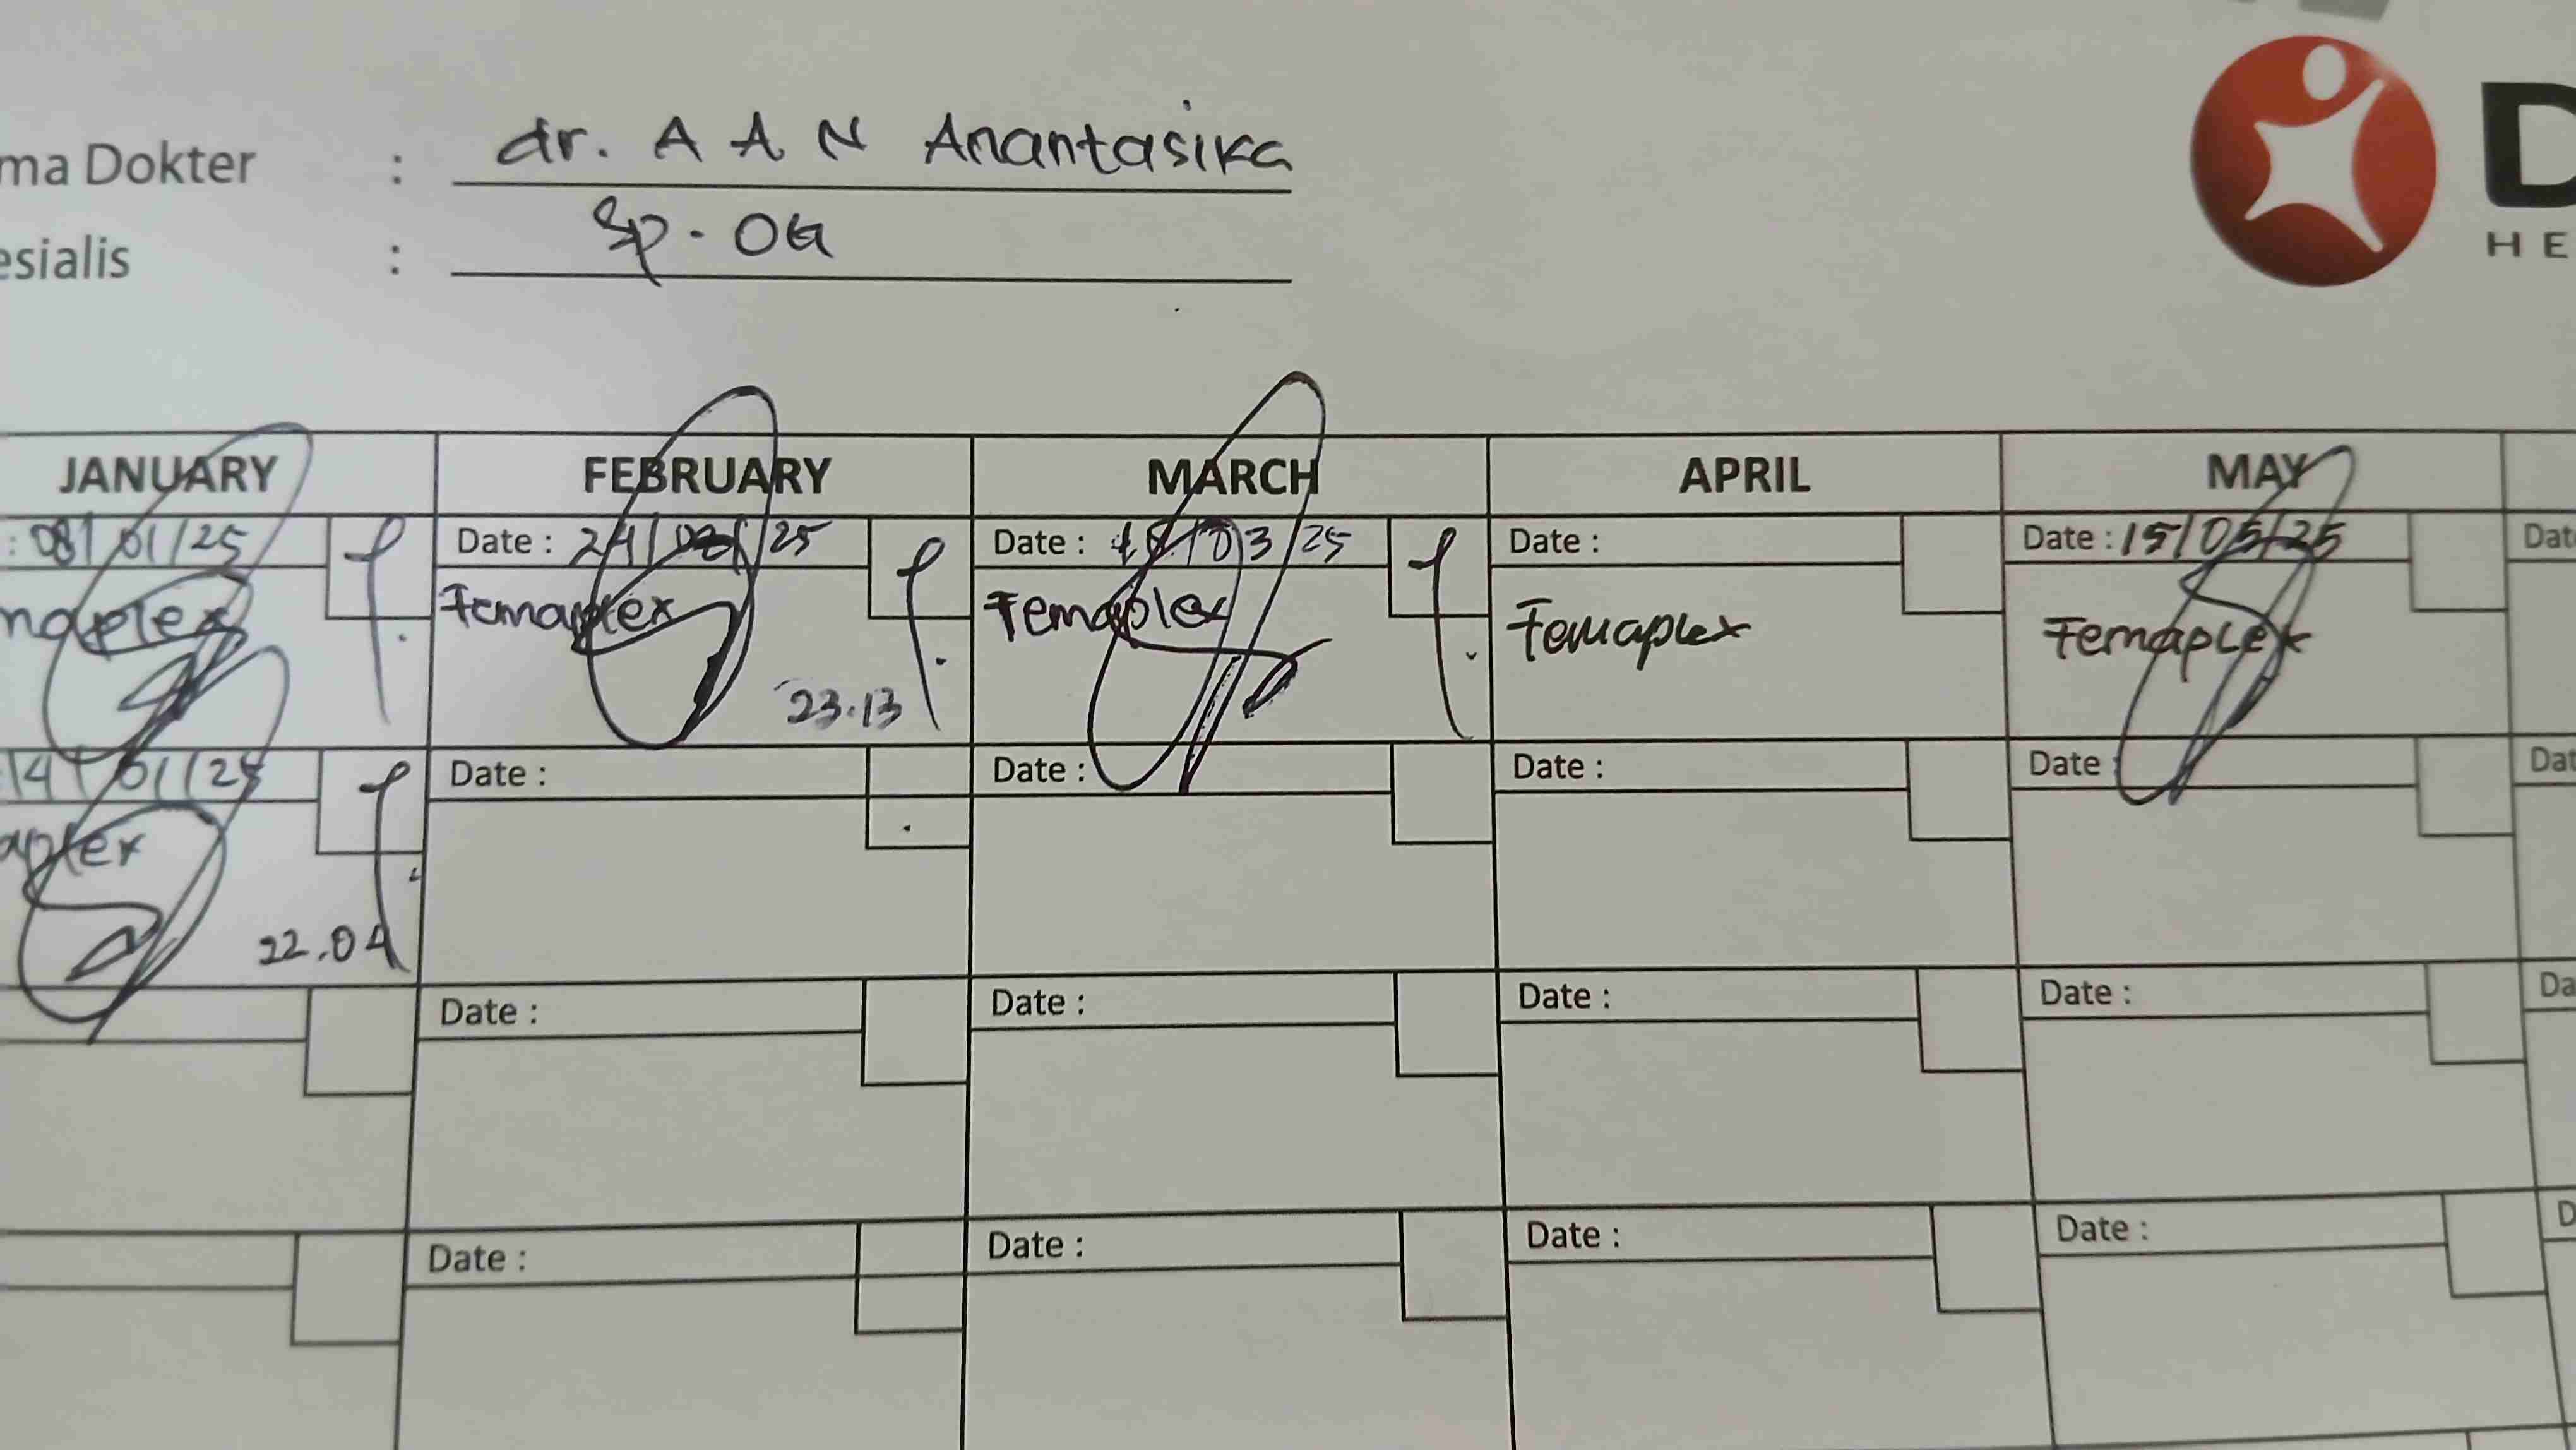 ma Dokter : dr. A A N Anantasika
esialis : Sp. OG
D
HE
JANUARY FEBRUARY MARCH APRIL MAY
: 08/01/25 Date : Date : /03/25 Date : Date : 15/05/25 Dat
maplex Femaplex Femaplex Femaplex Femaplex
23.13
14/01/25 Date : Date : Date : Date : Dat
aplex
22.04
Date : Date : Date : Date : Da
Date : Date : Date : Date : D